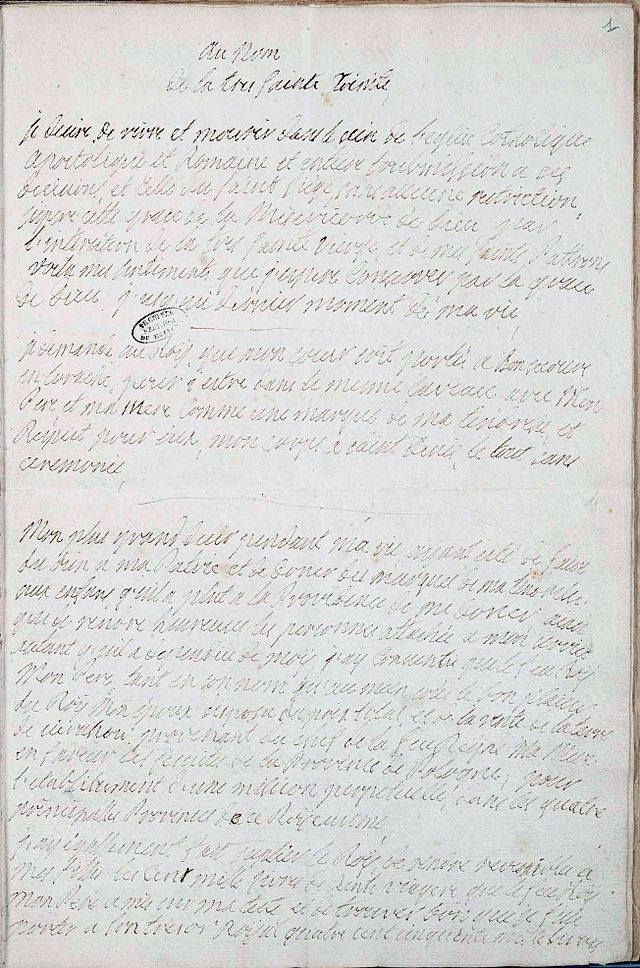 1
Au Nom
de la tres sainte Trinité
je desire de vivre et mourir dans le sein de l'eglise Catholique
apostolique et Romaine et entiere soubmission a ses
decisions et celle du saint siege, sans aucune restriction,
j'espere cette grace de la Misericorde de dieu par
l'intercession de la tres sainte vierge et de mes saints Patrons
voila mes sentiments que j'espere conserver par la grace
de dieu jusqu'au dernier moment de ma vie
je demande au Roy que mon coeur soit portée a Bonsecours
en Loraine, pour y estre dans le meme caveau avec Mon
Pere et ma Mere comme une marque de ma tendresse et
Respect pour eux, mon corps a saint Denis, le tout sans
ceremonie,
Mon plus grand desir pendant ma vie ayant esté de faire
du bien a ma Patrie et de doner des marques de ma tendresse
aux enfans qu'il a plut a la Providence de me doner, ainsi
que de rendre heureuses les personnes attachée a mon service
autant qu'il a dependue de moy, j'ay que le feu Roy
Mon Pere tant en son nom qu'au mien avec le bon plaisir
du Roy Mon epoux disposa du prix total et de la vente de la terre
de provenant du chef de la feu Reyne ma Mere
en faveur des jesuites de la Province de Pologne, pour
l'etablissement d'une mission perpetuelle, dans les quatre
principales Provinces de ce Royaume
j'ay egallement fait suplier le Roy de rendre reversible a
mes filles les cent mille livres de rente viagere que le feu Roy
mon Pere a mis sur ma teste et de trouver bon que je fisse
porter a son tresor Royal quatre cent cinquante mille livres